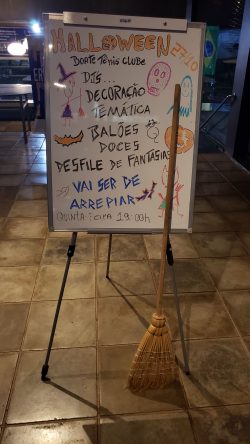 HALLOWEEN
27.10
BOATE TÊNIS CLUBE
DJS...
DECORAÇÃO
TEMÁTICA
BALÕES
DOCES
DESFILE DE FANTASIAS
VAI SER DE
ARREPIAR
QUINTA-FEIRA 19:00h